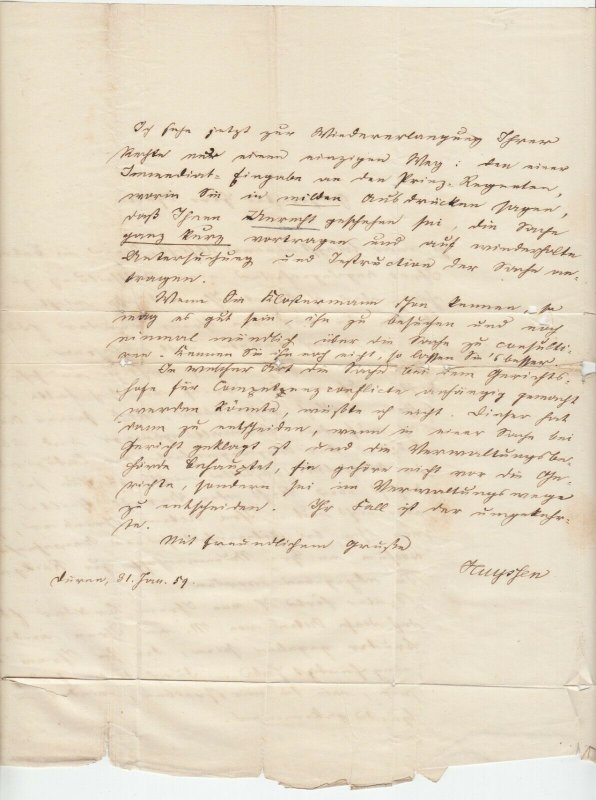 Ich sehe jetzt zur Wiedererlangung Ihrer
Rechte nur einen einzigen Weg: den einer
Immediat-Eingabe an den Prinz-Regenten,
worin Sie in milden Ausdrücken sagen,
daß Ihnen Unrecht geschehen sei, die Sache
ganz kurz vortragen und auf wiederholte
Untersuchung und Instruction der Sache an-
tragen.
Wenn Sie Klostermann schon kennen, so
mag es gut sein, ihn zu besuchen und noch
einmal mündlich über die Sache zu consulti-
ren. Kennen Sie ihn noch nicht, so lassen Sie's besser.
In welcher Art die Sache bei dem Gerichts-
hofe für Competenzconflicte anhängig gemacht
werden könnte, wüßte ich nicht. Dieser hat
dann zu entscheiden, wenn in einer Sache bei
Gericht geklagt ist und die Verwaltungsbe-
hörde behauptet, sie gehöre nicht vor die Ge-
richte, sondern sei im Verwaltungswege
zu entscheiden. Ihr Fall ist der umgekehr-
te.
Mit freundlichem Gruße
Huyssen
Düren, 31 Jan. 59.